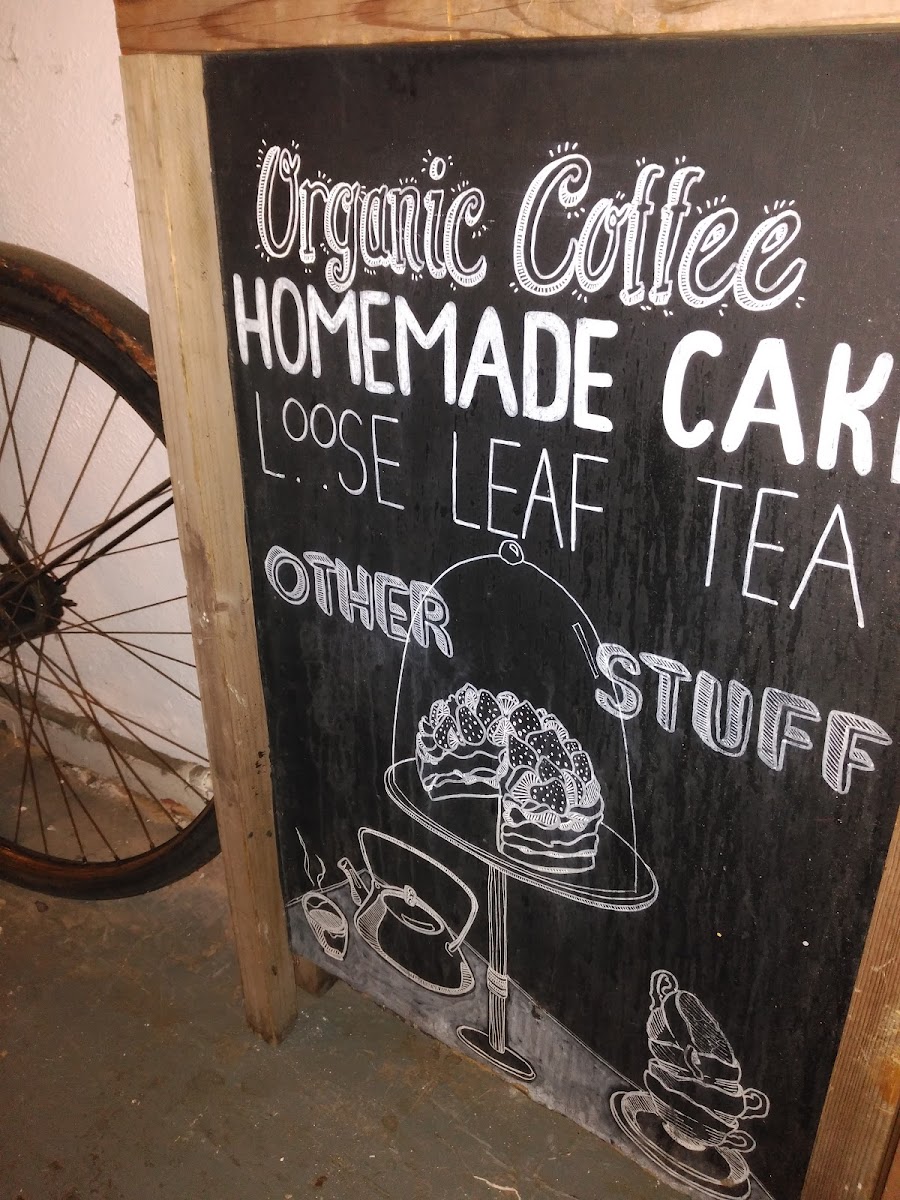 Organic Coffee
HOMEMADE CAK
LOOSE LEAF TEA
OTHER STUFF